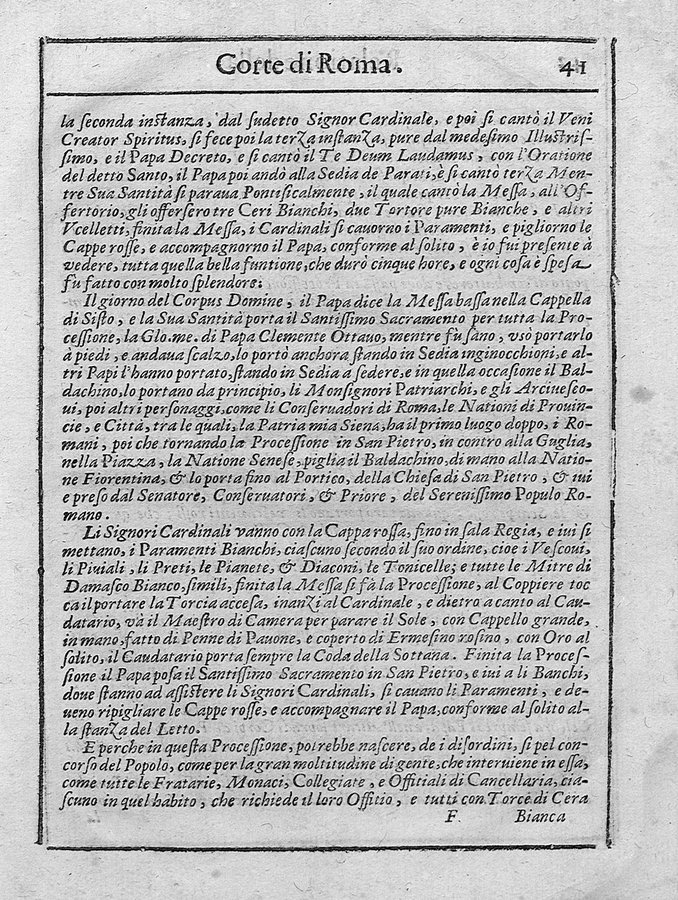 Corte di Roma. 41
la seconda instanza, dal sudetto Signor Cardinale, e poi si cantò il Veni
Creator Spiritus, si fece poi la terza instanza, pure dal medesimo Illustris-
simo, e il Papa Decretò, e si cantò il Te Deum Laudamus, con l'Oratione
del detto Santo, il Papa poi andò alla Sedia de Parati, è si cantò terza Men-
tre Sua Santità si paraua Pontificalmente, il quale cantò la Messa, all'Of-
fertorio, gli offersero tre Ceri Bianchi, due Tortore pure Bianche, e altri
Vcelletti, finita la Messa, i Cardinali si cauorno i Paramenti, e pigliorno le
Cappe rosse, e accompagnorno il Papa, conforme al solito, è io fui presente à
vedere, tutta quella bella funtione, che durò cinque hore, e ogni cosa è spesa
fù fatto con molto splendore.
Il giorno del Corpus Domine, il Papa dice la Messa bassa nella Cappella
di Sisto, e la Sua Santità porta il Santissimo Sacramento per tutta la Pro-
cessione, la Glo.me. di Papa Clemente Ottauo, mentre fù sano, vsò portarlo
à piedi, e andaua scalzo, lo portò anchora stando in Sedia inginocchioni, e al-
tri Papi l'hanno portato, stando in Sedia à sedere, e in quella occasione il Bal-
dachino, lo portano da principio, li Monsignori Patriarchi, e gli Arciuesco-
ui, poi altri personaggi, come li Conseruadori di Roma, le Nationi di Prouin-
cie, e Città, tra le quali, la Patria mia Siena, ha il primo luogo doppo, i Ro-
mani, poi che tornando la Processione in San Pietro, in contro alla Guglia,
nella Piazza, la Natione Senese, piglia il Baldachino, di mano alla Natio-
ne Fiorentina, & lo porta fino al Portico, della Chiesa di San Pietro, & iui
e preso dal Senatore, Conseruatori, & Priore, del Serenissimo Populo Ro-
mano.
Li Signori Cardinali vanno con la Cappa rossa, fino in sala Regia, e iui si
mettano, i Paramenti Bianchi, ciascuno secondo il suo ordine, cioe i Vescoui,
li Piuiali, li Preti, le Pianete, & Diaconi, le Tonicelle; e tutte le Mitre di
Damasco Bianco, simili, finita la Messa si fà la Processione, al Coppiere toc
ca il portare la Torcia accesa, inanzi al Cardinale, e dietro a canto al Cau-
datario, và il Maestro di Camera per parare il Sole, con Cappello grande,
in mano, fatto di Penne di Pauone, e coperto di Ermesino rosino, con Oro al
solito, il Caudatario porta sempre la Coda della Sottana. Finita la Proces-
sione il Papa posa il Santissimo Sacramento in San Pietro, e iui a li Banchi,
doue stanno ad assistere li Signori Cardinali, si cauano li Paramenti, e de-
ueno ripigliare le Cappe rosse, e accompagnare il Papa, conforme al solito al-
la stanza del Letto.
E perche in questa Processione, potrebbe nascere, de i disordini, si pel con-
corso del Popolo, come per la gran moltitudine di gente, che interuiene in essa,
come tutte le Fratarie, Monaci, Collegiate, e Offitiali di Cancellaria, cia-
scuno in quel habito, che richiede il loro Offitio, e tutti con Torce di Cera
F. Bianca